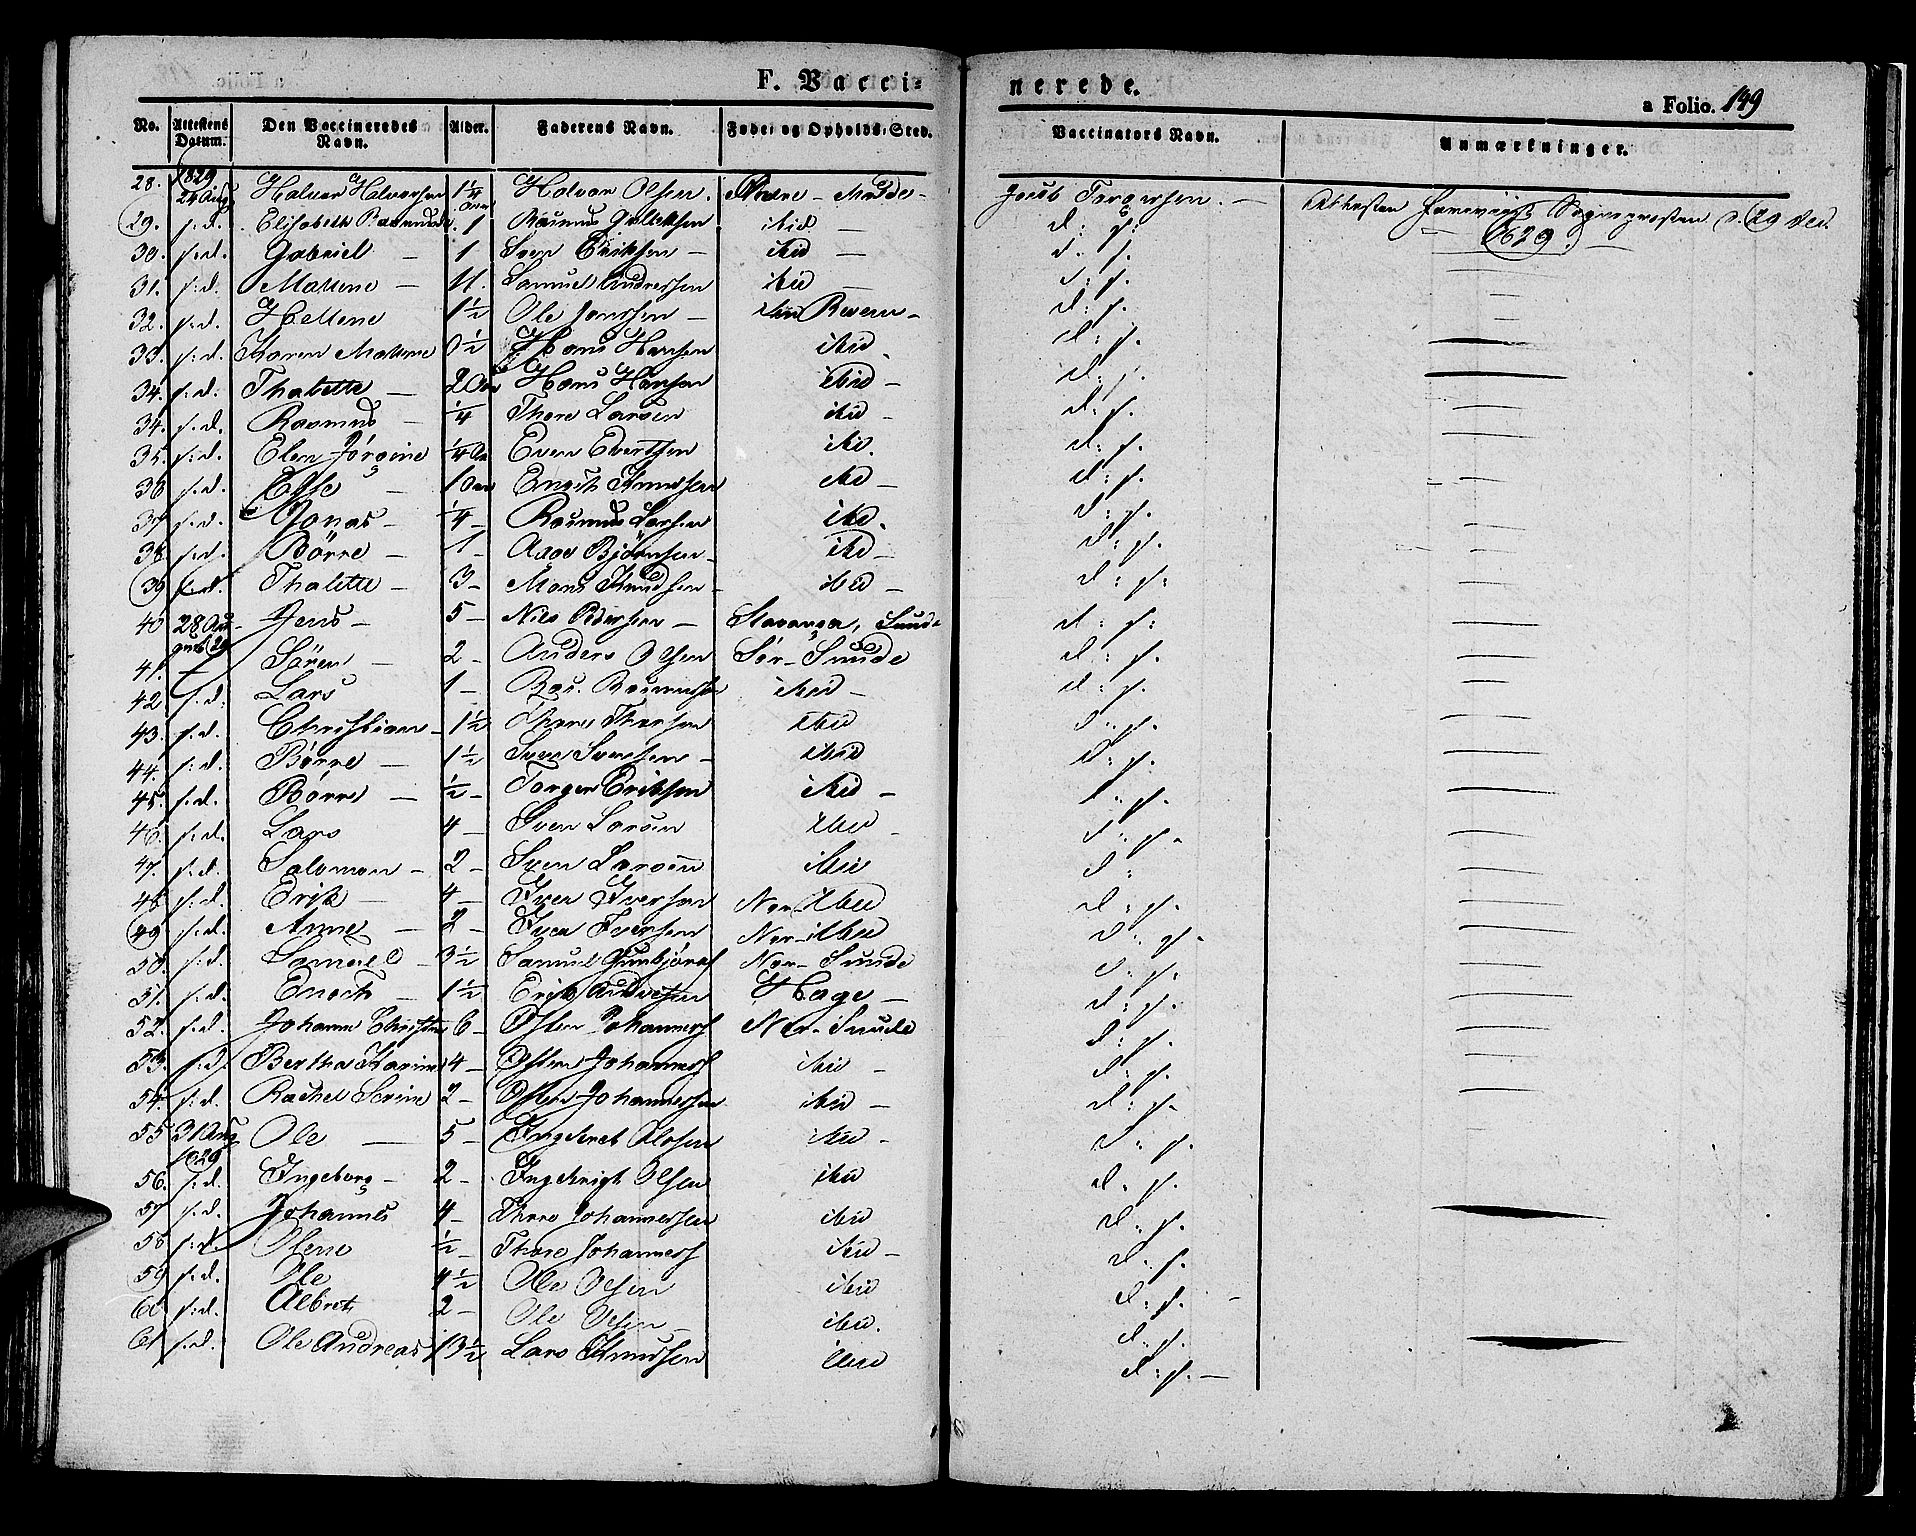 F. Vacci-
nerede.
a Folio. 149
No. Attestens Datum. Den Vaccineredes Navn. Alder. Faderens Navn. Føde- og Opholds-Sted. Vaccinators Navn. Anmærkninger.
28. 1829 24 Aug Halvor Halvorsen 1 1/4 Halvor Olsen. Madle - Jacob Torgersen. Attesten Sogneprovsten d. 29 Dec.
29. s:d. Elisabeth 1 Rasmus ibid - d: s. 1829.
30. s:d. Gabriel - 1 Sven Eriksen - ibid - d: s.
31. s:d. Mallene - 11. Samuel Andressen ibid - d: s.
32. s:d. Hellene 1 1/2 Ole Jonssen - Revem - d: s.
33. s:d. Karen Mallene 0 1/2 Hans Hansen ibid d: s.
34. s:d. Thalette - 2 Hans Hansen ibid - d: s.
34. s:d. Rasmus - 1/4 Thore Larsen ibid - d: s.
35. s:d. Elen Jörgine 1/4 Even Evertsen ibid. d: s.
36 s:d. Else - 1 Enoch Knudsen ibid - d: s.
37 s:d. Jonas - 1/4 - Rasmus Larsen ibid. d: s.
38. s:d. Börre - 1 - Aage Björnsen - ibid - d: s.
39 s:d. Thalette - 3 - Mons Knudsen - ibid - d: s:
40 28 Au- gust 29 Jens - 5 - Nils Pedersen - Stavanger, Sunde d: s:
41. Sören - 2 - Anders Olsen Sør-Sunde d: s.
42 s:d. Lars 1 - Ras. Rasmussen ibid - d: s.
43. s:d. Christian - 1 1/2 Thore Thorsen ibid d: s.
44. s:d. Börre - 1 1/2 Sven Svensen - ibid d: s.
45. s:d. Börre - 1/2 - Torger Eriksen ibid - d: s.
46. s:d. Lars 4 - Sven Larsen ibid - d: s.
47. s:d. Salomon - 2 - Sven Larsen ibid d:
48. s:d. Erik - 4 - Iver Iversen Nor-ibid d: s.
49 s:d. Anne - 2 - Iver Iversen Nor-ibid d: s.
50. s:d. Samuel - 3 1/2 Samuel Gunbjörns Nor-Sunde d: s.
51. s:d. Enoch - 1 1/2 Erik Hage - d: s.
52. s:d. Johanne 6 - Osten Johanness Nor-Sunde d: s.
53. s:d. Bertha Karine 4 - Osten Johanness ibid - d: s.
54. s:d. Rachel Serine 2 - Osten Johannessen ibid - d: s.
55 31 Aug 1829 Ole - 5 - ibid - d: s.
56. s:d. Ingeborg - 2 - Olsen ibid d: s.
57 s:d. Johannes 4 - Thore Johannessen ibid d: s.
58 s:d. Olene 1/2 - Thore Johanness ibid - d: s.
59 s:d. Ole 4 1/2 Ole Olsen ibid d: s.
60 s:d. Albret 2 - Ole Olsen - ibid. d: s.
61 s:d. Ole Andreas 13 1/2 Lars Knudsen ibid d: s. -